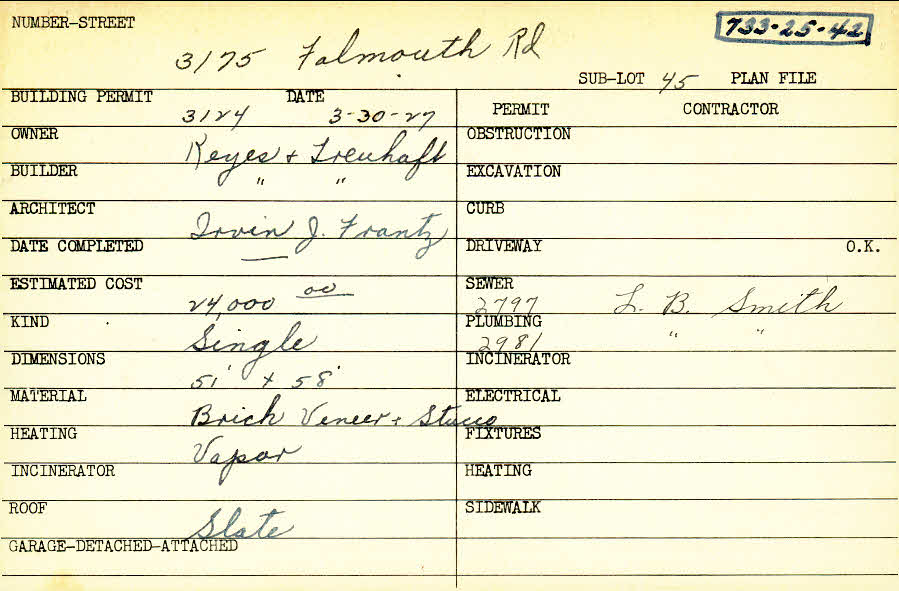 NUMBER-STREET
733-25-42
3175 Falmouth Rd
SUB-LOT 45 PLAN FILE
BUILDING PERMIT 3124 DATE 3-30-27
PERMIT CONTRACTOR
OWNER Keyes & Treuhaft
OBSTRUCTION
BUILDER " "
EXCAVATION
ARCHITECT Irvin J. Frantz
CURB
DATE COMPLETED —
DRIVEWAY O.K.
ESTIMATED COST 24,000 00
SEWER 2797 L. B. Smith
KIND Single
PLUMBING 2981 " "
DIMENSIONS 51' x 58'
INCINERATOR
MATERIAL Brick Veneer & Stucco
ELECTRICAL
HEATING Vapor
FIXTURES
INCINERATOR
HEATING
ROOF Slate
SIDEWALK
GARAGE-DETACHED-ATTACHED